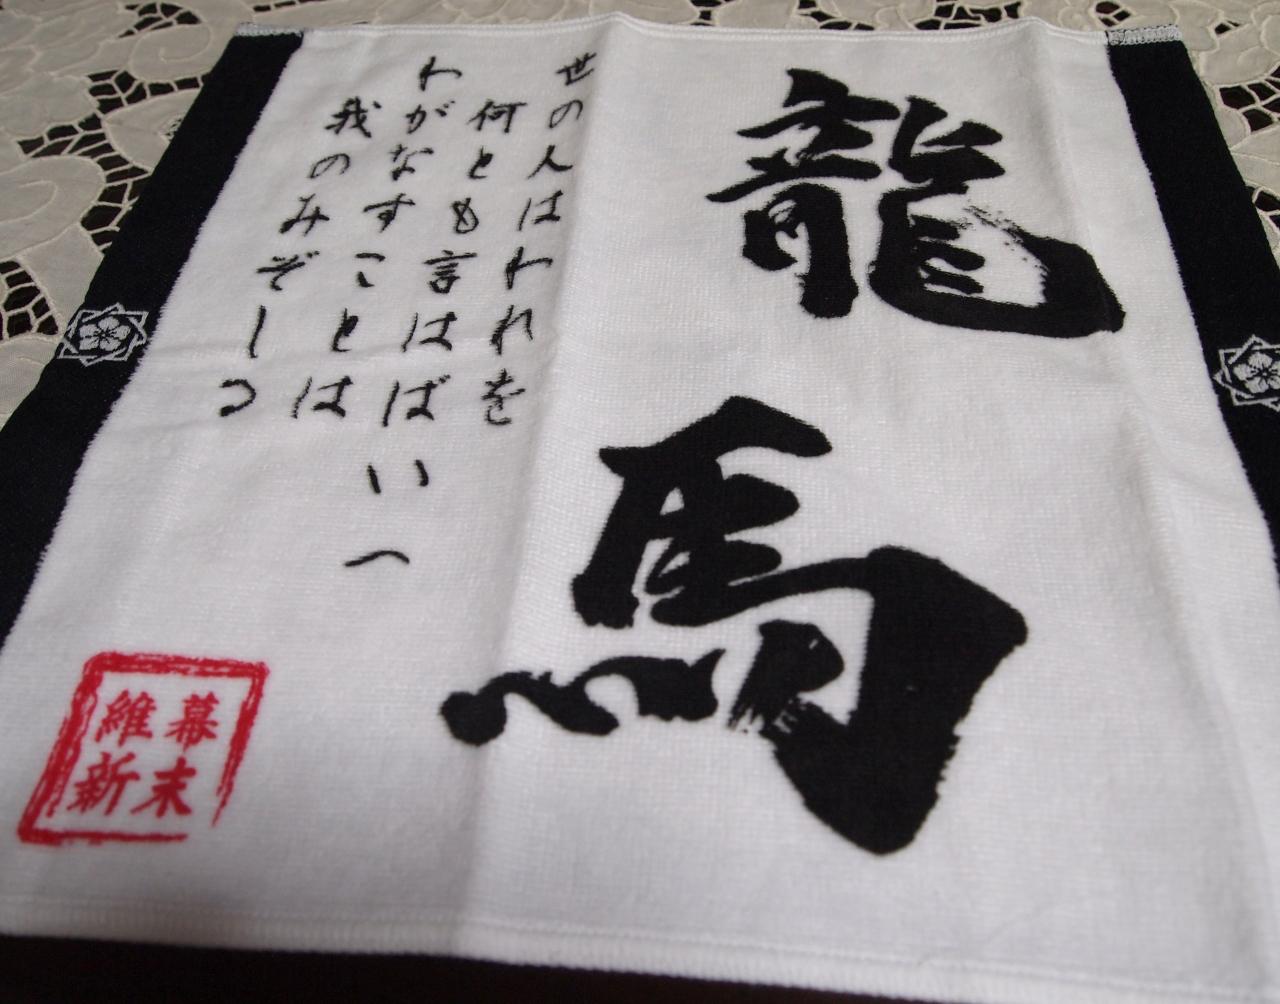 龍馬
世の人はわれを
何とも言はばいへ
わがなすことは
我のみぞしる
幕末
維新